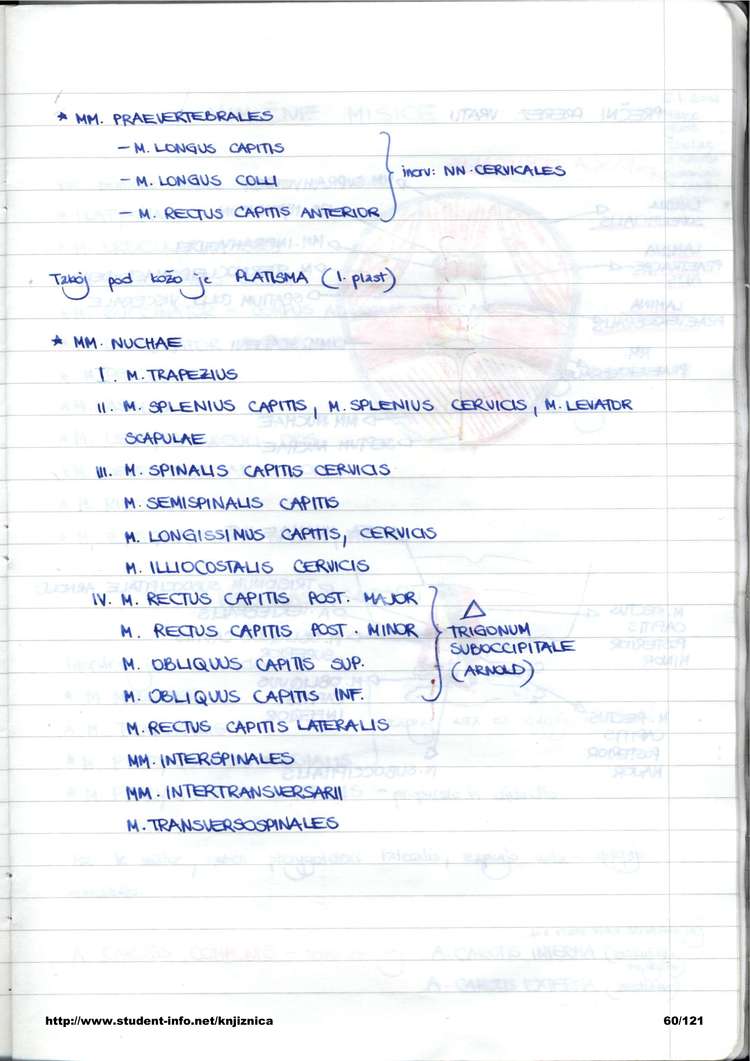 * MM. PRAEVERTEBRALES
– M. LONGUS CAPITIS
– M. LONGUS COLLI
– M. RECTUS CAPITIS ANTERIOR
inerv: NN. CERVICALES
Takoj pod kožo je PLATISMA (1. plast)
* MM. NUCHAE
I. M. TRAPEZIUS
II. M. SPLENIUS CAPITIS, M. SPLENIUS CERVICIS, M. LEVATOR
SCAPULAE
III. M. SPINALIS CAPITIS CERVICIS
M. SEMISPINALIS CAPITIS
M. LONGISSIMUS CAPITIS, CERVICIS
M. ILLIOCOSTALIS CERVICIS
IV. M. RECTUS CAPITIS POST. MAJOR
M. RECTUS CAPITIS POST. MINOR
M. OBLIQUUS CAPITIS SUP.
M. OBLIQUUS CAPITIS INF.
△
TRIGONUM
SUBOCCIPITALE
(ARNOLD)
M. RECTUS CAPITIS LATERALIS
MM. INTERSPINALES
MM. INTERTRANSVERSARII
M. TRANSVERSOSPINALES
http://www.student-info.net/knjiznica
60/121